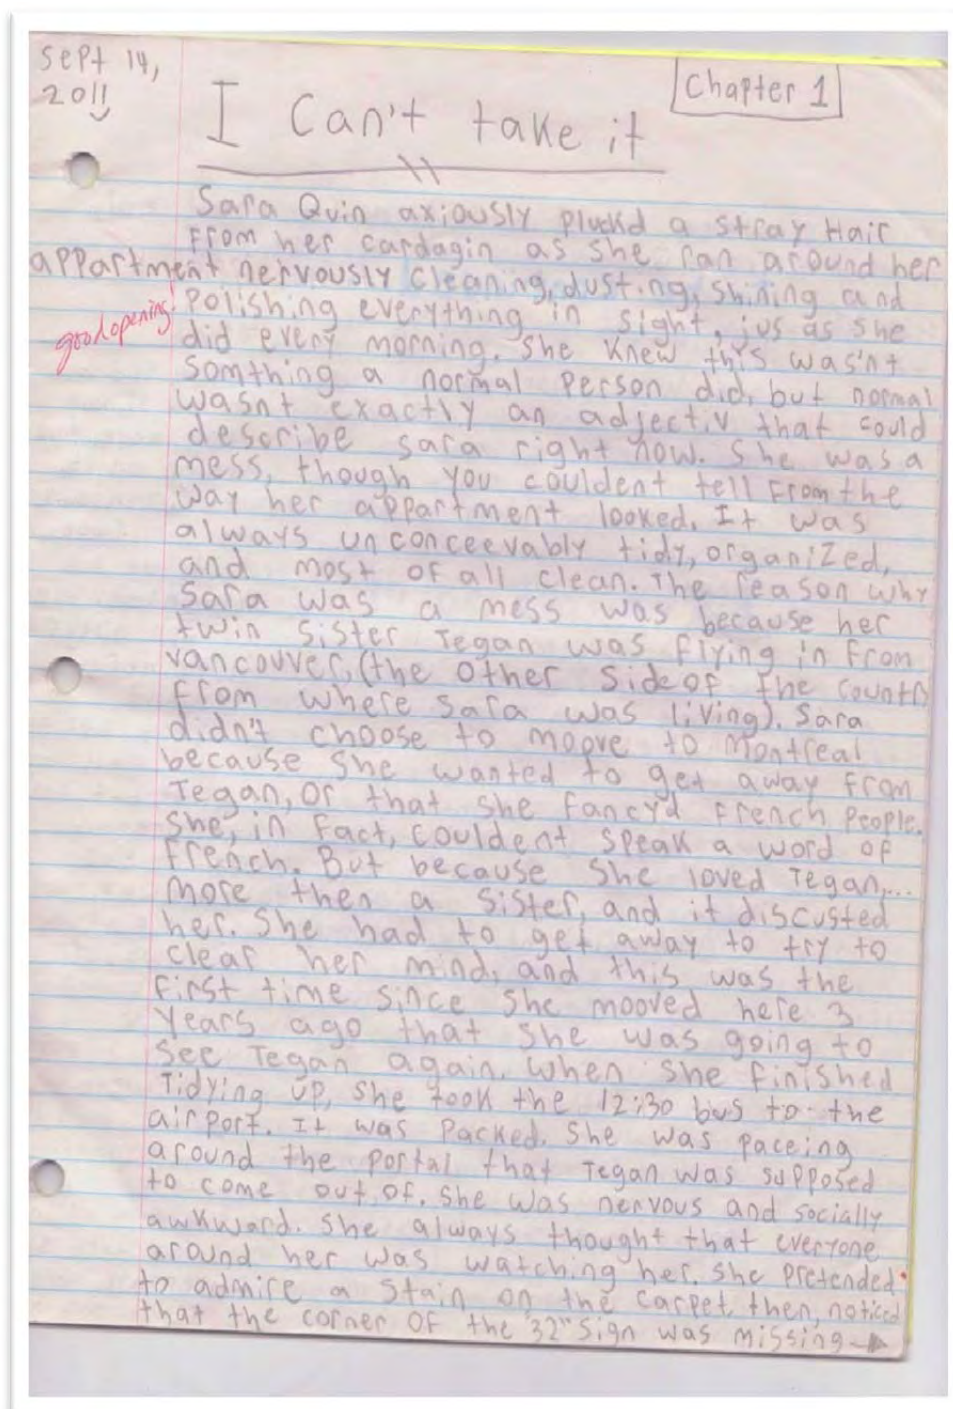 Sept 14,
2011
Chapter 1
I Can't take it
Sara Quin axiously pluckd a stray Hair
From her cardagin as she ran around her
appartment nervously cleaning, dusting, shining and
good opening!
Polishing everything in sight, jus as she
did every morning. She knew this wasn't
Somthing a normal Person did, but normal
wasnt exactly an adjectiv that could
describe sara right now. She was a
mess, though you couldent tell From the
way her appartment looked. It was
always unconceevably tidy, organized,
and most of all clean. The reason why
Sara was a mess was because her
twin sister Tegan was flying in from
vancouver, (the other side of the country
from where sara was living). Sara
didn't choose to moove to Montreal
because she wanted to get away from
Tegan, or that she fancy'd french People.
She, in fact, couldent speak a word of
french. But because she loved Tegan,...
more then a sister, and it discusted
her. She had to get away to try to
clear her mind, and this was the
first time since she mooved here 3
years ago that she was going to
see Tegan again. When she finished
Tidying up, she took the 12:30 bus to the
airport. It was Packed. She was paceing
around the portal that Tegan was supposed
to come out of. She was nervous and socially
awkward. She always thought that everyone
around her was watching her. She Pretended
to admire a stain on the carpet then, noticed
that the corner of the "32" sign was missing